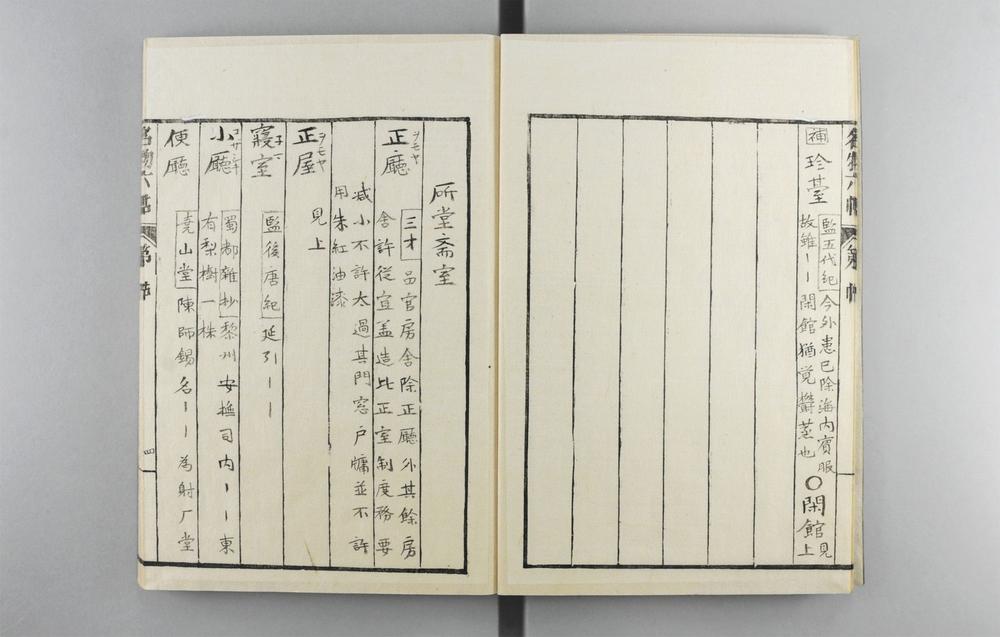 補 珍䑓
監五代紀 今外患已除海内賓服
故雖〡〡閑館猶覚欝蒸也
○閑館 見上
所堂斎室
正廳 ヲモヤ
三才 品官房舎除正廳外其餘房
舎許従宜盖造比正室制度務要
减小不許太過其門窓戸牗並不許
用朱紅油漆
正屋 ヲモヤ
見上
寢室 子マ
監後唐紀 延引〡〡
小廳 コザシキ
蜀都雜抄 黎州安撫司内〡〡東
有梨樹一株
便廳
堯山堂 陳師錫名〡〡為射厂堂
名物六帖 第 帖
四